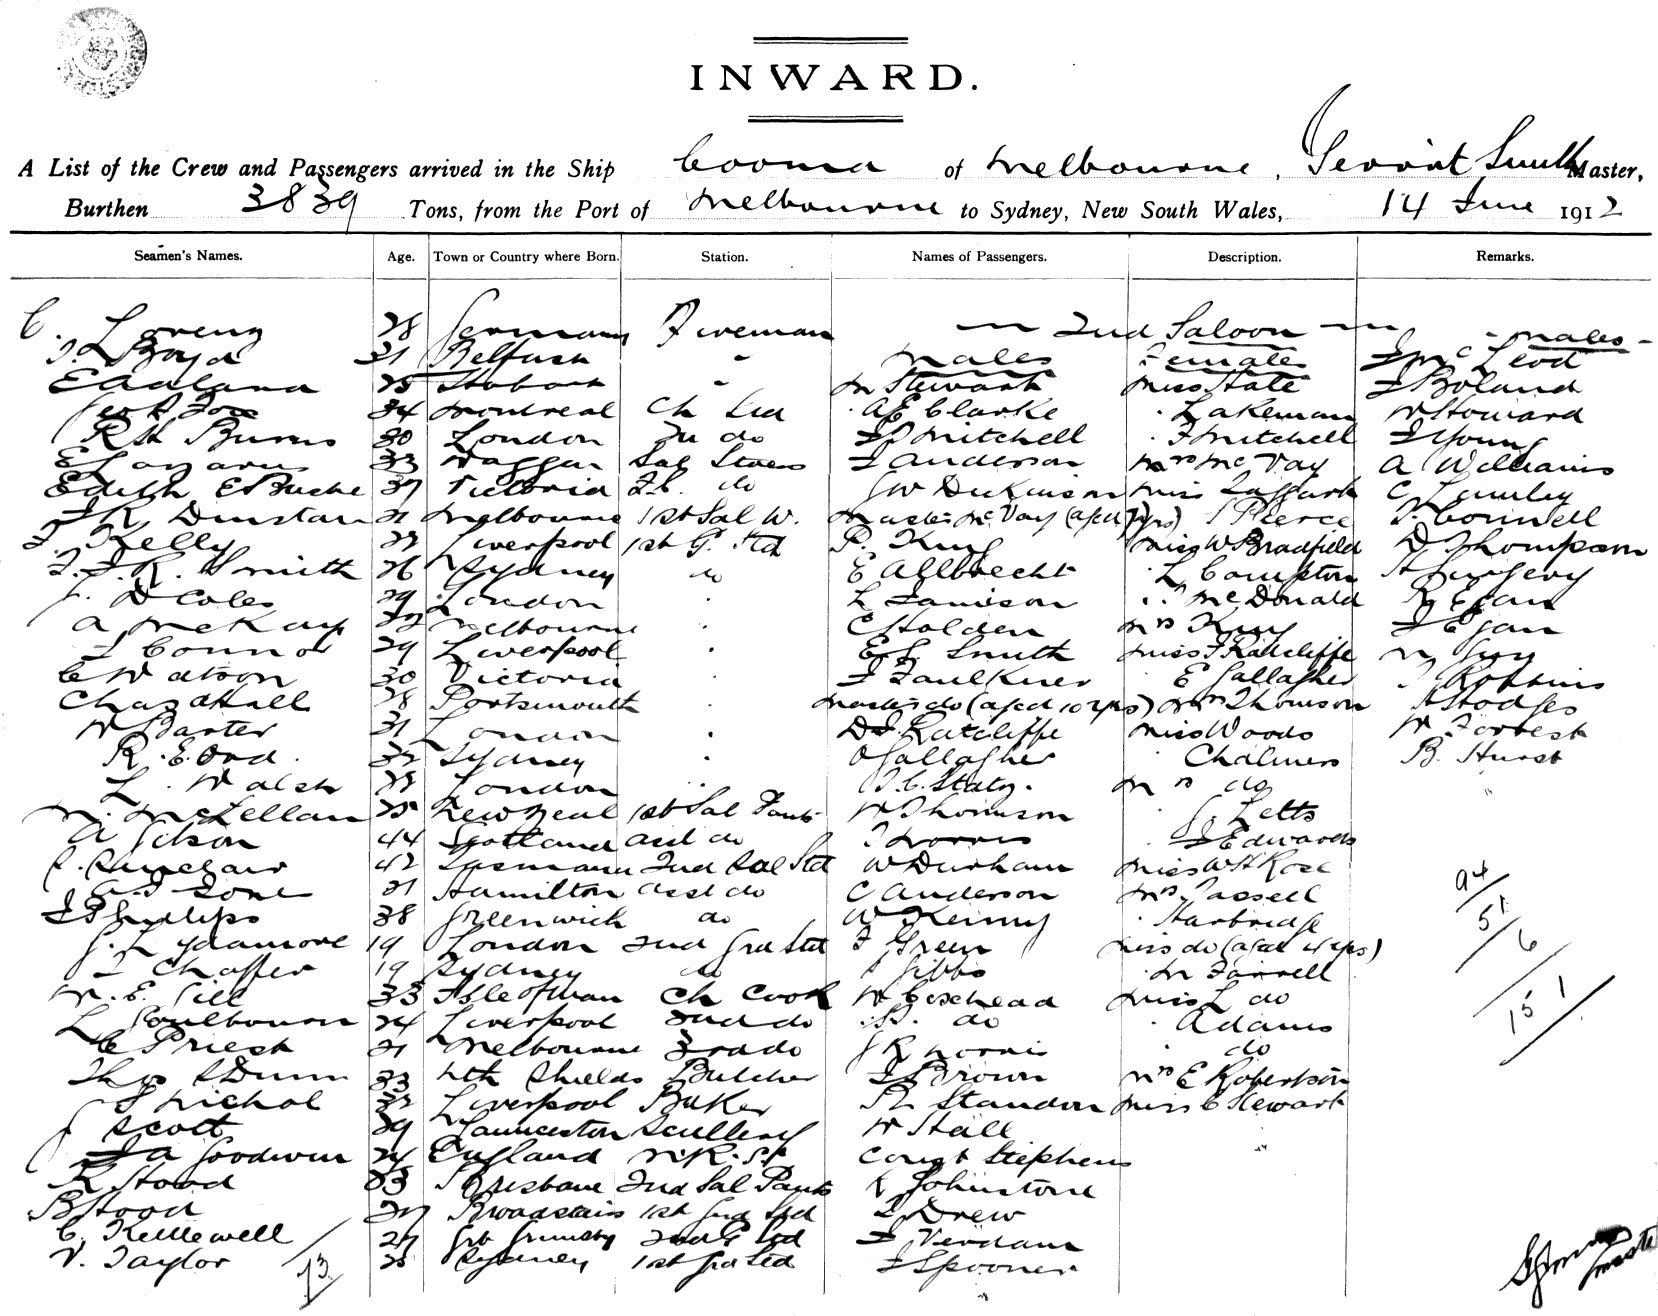 INWARD.
A List of the Crew and Passengers arrived in the Ship Cooma of Melbourne, Smith Master,
Burthen 3839 Tons, from the Port of Melbourne to Sydney, New South Wales, 14 June 1912
Seamen's Names. Age. Town or Country where Born. Station. Names of Passengers. Description. Remarks.
C. Lorenz 28 Germany Fireman — 2nd Saloon — - males -
Boyd 21 Belfast " males Females J McLeod
25 Hobart " Mr Stewart Miss State J Boland
34 Montreal Ch Std A E Clarke " Lakeman W Howard
R H Burns 30 London 2nd do J Mitchell " F Mitchell J Young
E Lazarus 33 Wagga Sal Stoes J Anderson Mrs McVay A Williams
Edith E Bushe 37 Victoria do G W Dickinson Miss Taggart C Lumley
J R Dunstan 21 Melbourne 1st Sal W. Master McVay (aged 7 yrs) Pierce T. Connell
J. Kelly Liverpool 1st G. Std P. King Miss W Bradfield D Thompson
J. R. Smith 26 Sydney do E Allbrecht " L Compton
D Coles 29 London " L Jamieson " McDonald R Egan
A McKay 32 Melbourne " C Holden Mrs King J Egan
J Connor 29 Liverpool " E. J. Smith Miss F Ratcliffe
C Watson 30 Victoria " J Faulkner E Gallagher Robbins
Chas A Hall 28 Portsmouth " Master do (aged 10 yrs) Mrs Thomson Hodges
W Baxter 31 London " D J. Ratcliffe Miss Woods W Forrest
R. E. Ord 32 Sydney " O Gallagher Chalmers B. Hurst
L. Walsh 28 London " Mrs do
N. McLellan 25 New Zeal 1st Sal Pants W Thomson Letts
A Gibson 44 Scotland asst do Norris J Edwards
Sinclair 42 Tasmania 2nd Sal Std W Durham Miss W H Rose
21 Hamilton asst do C Anderson Mrs Tassell 94
J Phillips 38 Greenwich do W Kenny " Harbridge 51
G. L. Sydamore 19 London 2nd Gra Std F Green Miss do (aged 4 yrs) 6
Chaffer 19 Sydney do Gibbs Mr Farrell
W. E. Gill 33 Isle of Man Ch Cook Miss L do 151
L Goulbourn 24 Liverpool 2nd do do " Adams
C Priest 21 Melbourne 3rd do J R Norris " do
Thos Dunn 33 Nth Shields Butcher J Brown Mrs E Robertson
Nichol 32 Liverpool Baker R Standon Miss C Stewart
J Scott 29 Launceston Scullery W Stall
J A Goodwin 24 England Const Stephens
R Hood 33 Brisbane 2nd Sal Pants Johnstone
B Hood Broadstairs 1st Gra Std J Drew
C. Kettlewell 27 Gt Grimsby 2nd G Std J Verdam
V. Taylor 73 25 Sydney 1st Gra Std J Spooner